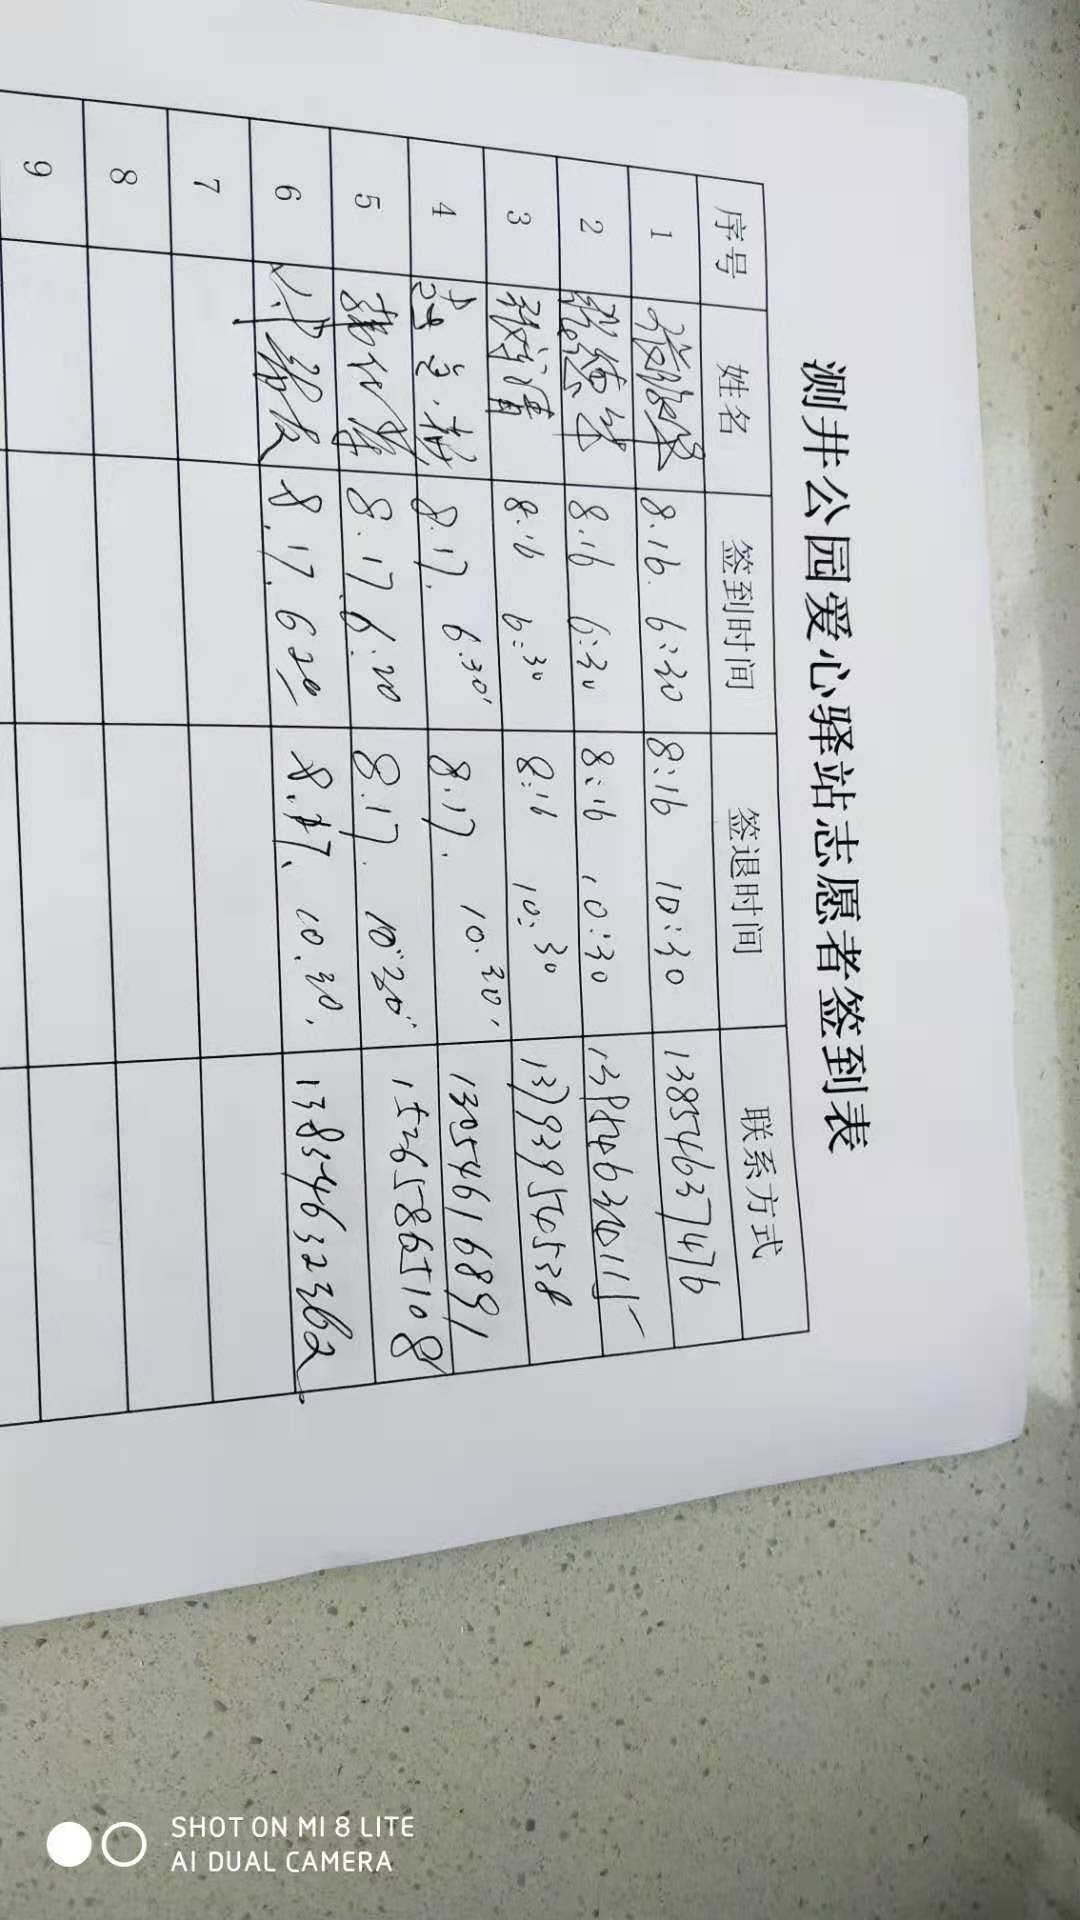 测井公园爱心驿站志愿者签到表
序号 姓名 签到时间 签退时间 联系方式
1 8.16. 6:30 8:16 10:30 13854637476
2 8.16 6:30 8:16 10:30
3 8.16 6:30 8:16 10:30 13793954538
4 8.17. 6.30' 8.17. 10.30' 13054616891
5 8.17 6.20 8.17. 10:30" 15265865108
6 8.17. 620 8.17. 10.30. 13854632362
7
8
9
SHOT ON MI 8 LITE
AI DUAL CAMERA